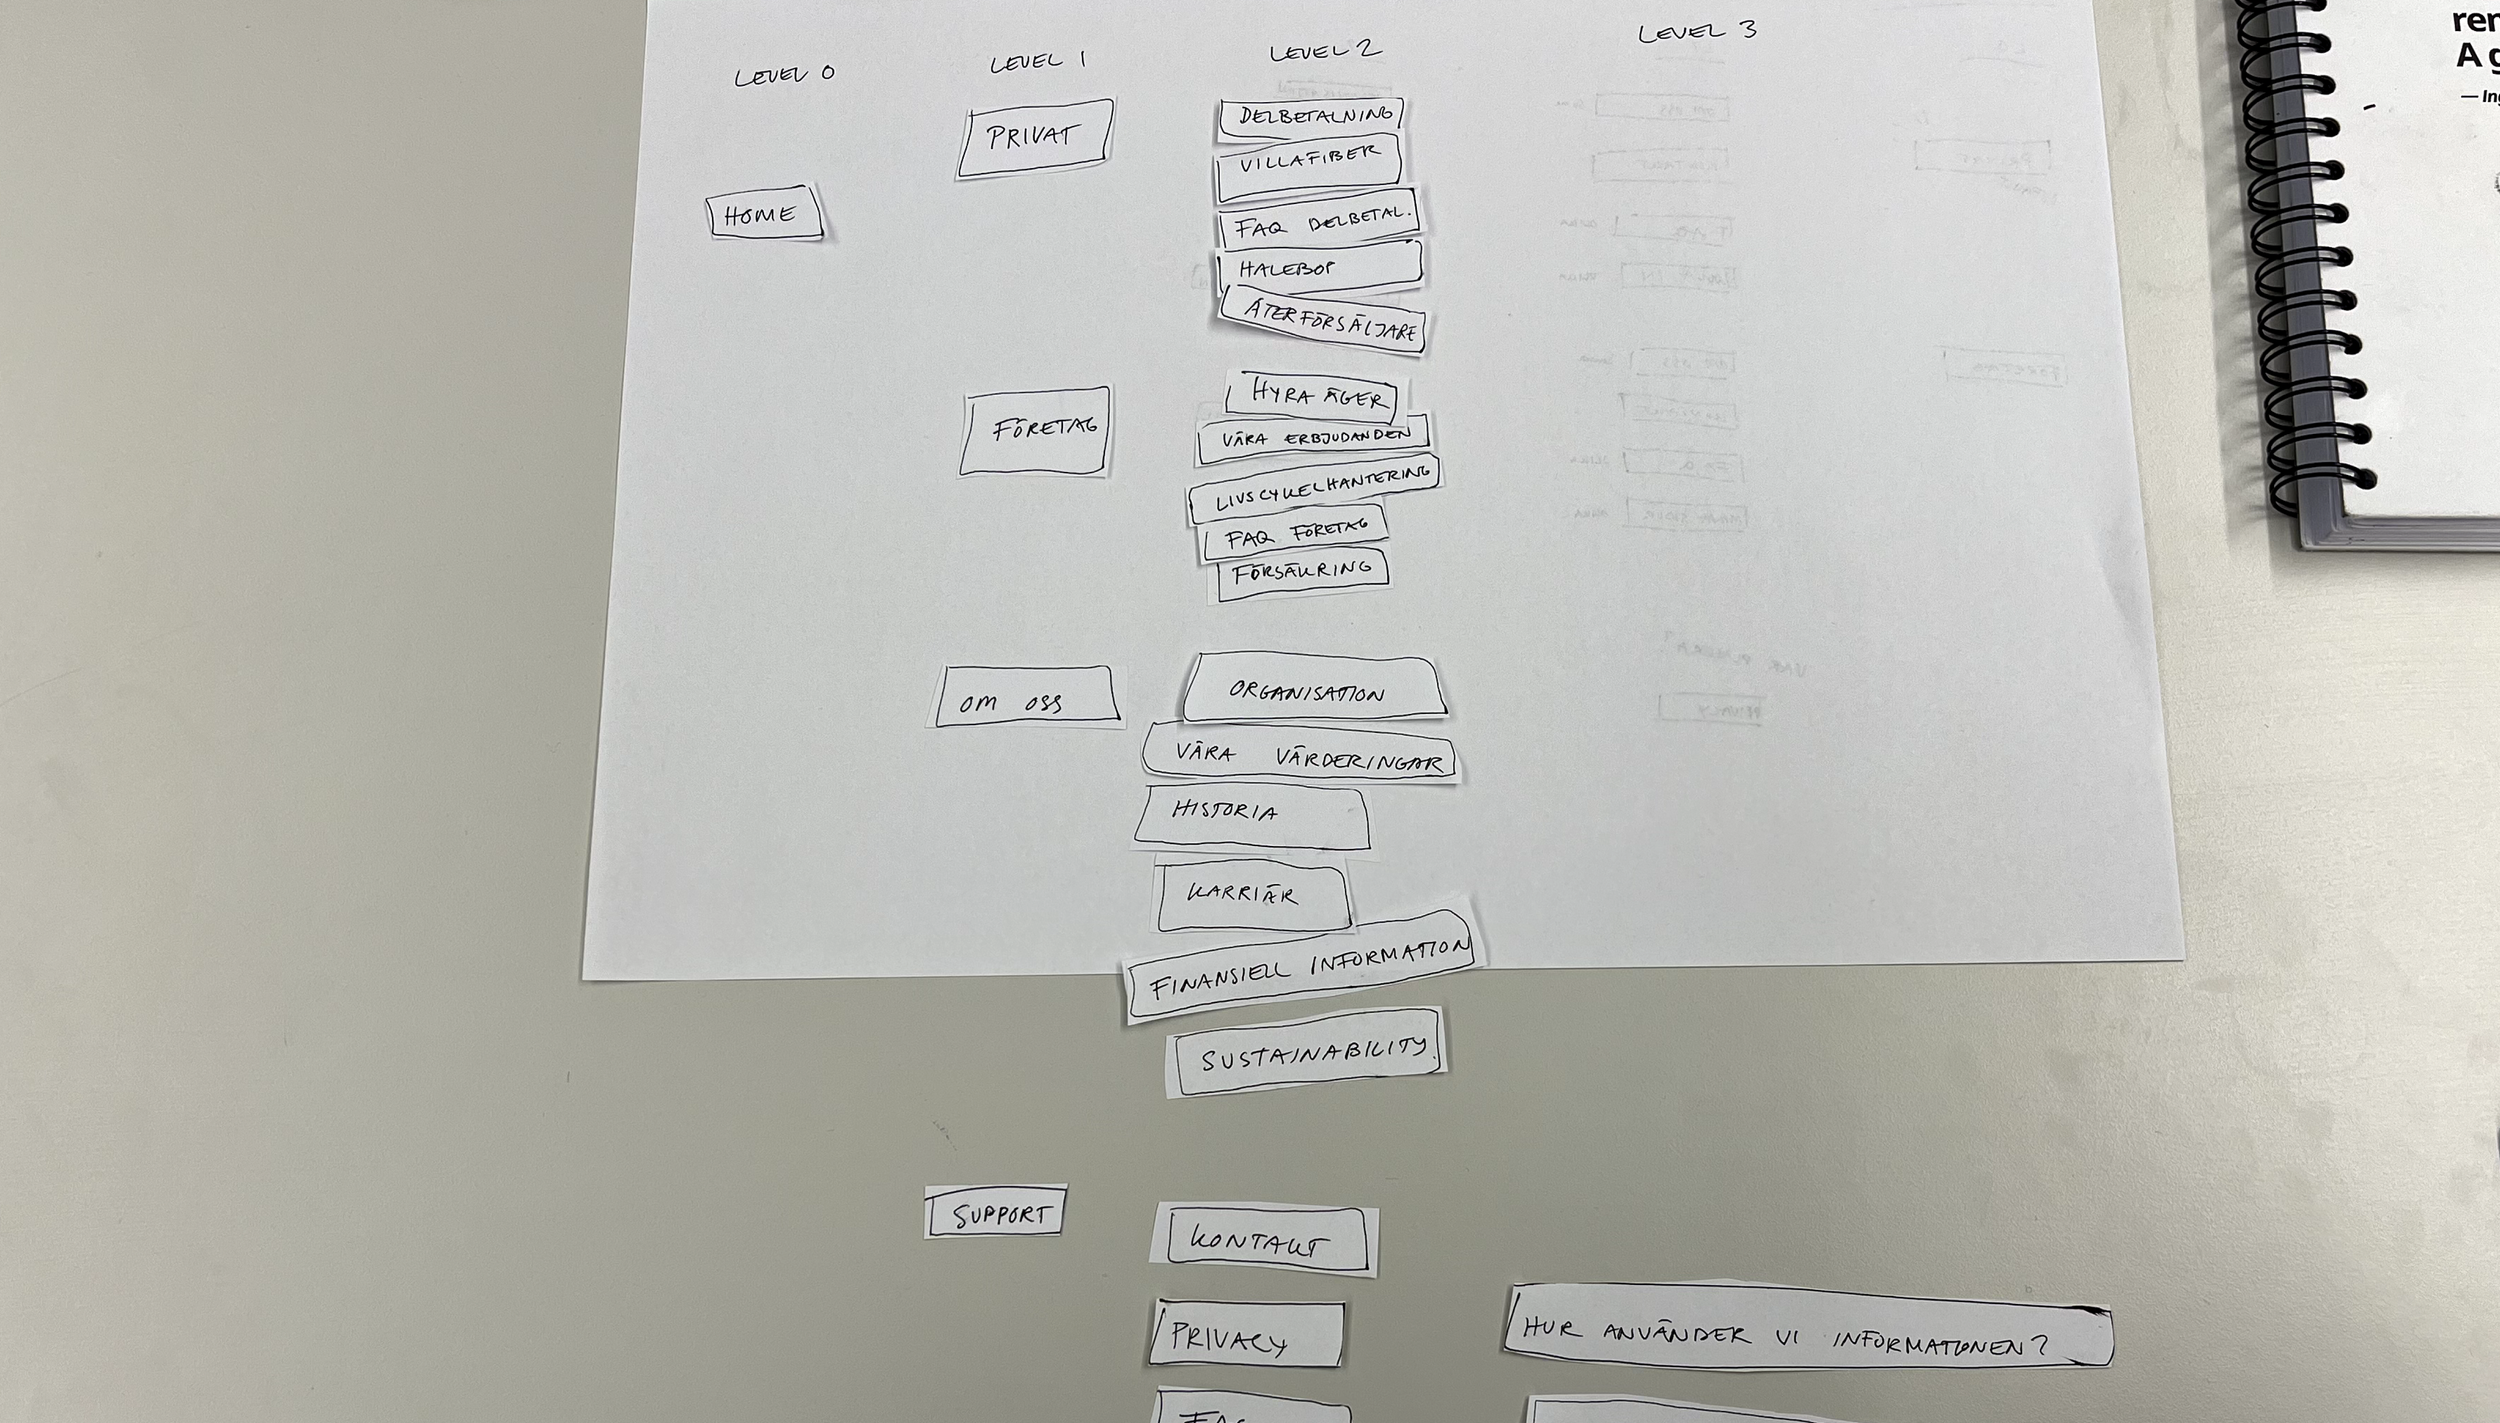 LEVEL 0
LEVEL 1
LEVEL 2
LEVEL 3
HOME
PRIVAT
DELBETALNING
VILLAFIBER
FAQ DELBETAL.
HALEBOP
ÅTERFÖRSÄLJARE
FÖRETAG
HYRA ÄGER
VÅRA ERBJUDANDEN
LIVSCYKELHANTERING
FAQ FÖRETAG
FÖRSÄKRING
OM OSS
ORGANISATION
VÅRA VÄRDERINGAR
HISTORIA
KARRIÄR
FINANSIELL INFORMATION
SUSTAINABILITY
SUPPORT
KONTAKT
PRIVACY
HUR ANVÄNDER VI INFORMATIONEN?
FAQ
ren
A g
— Ing